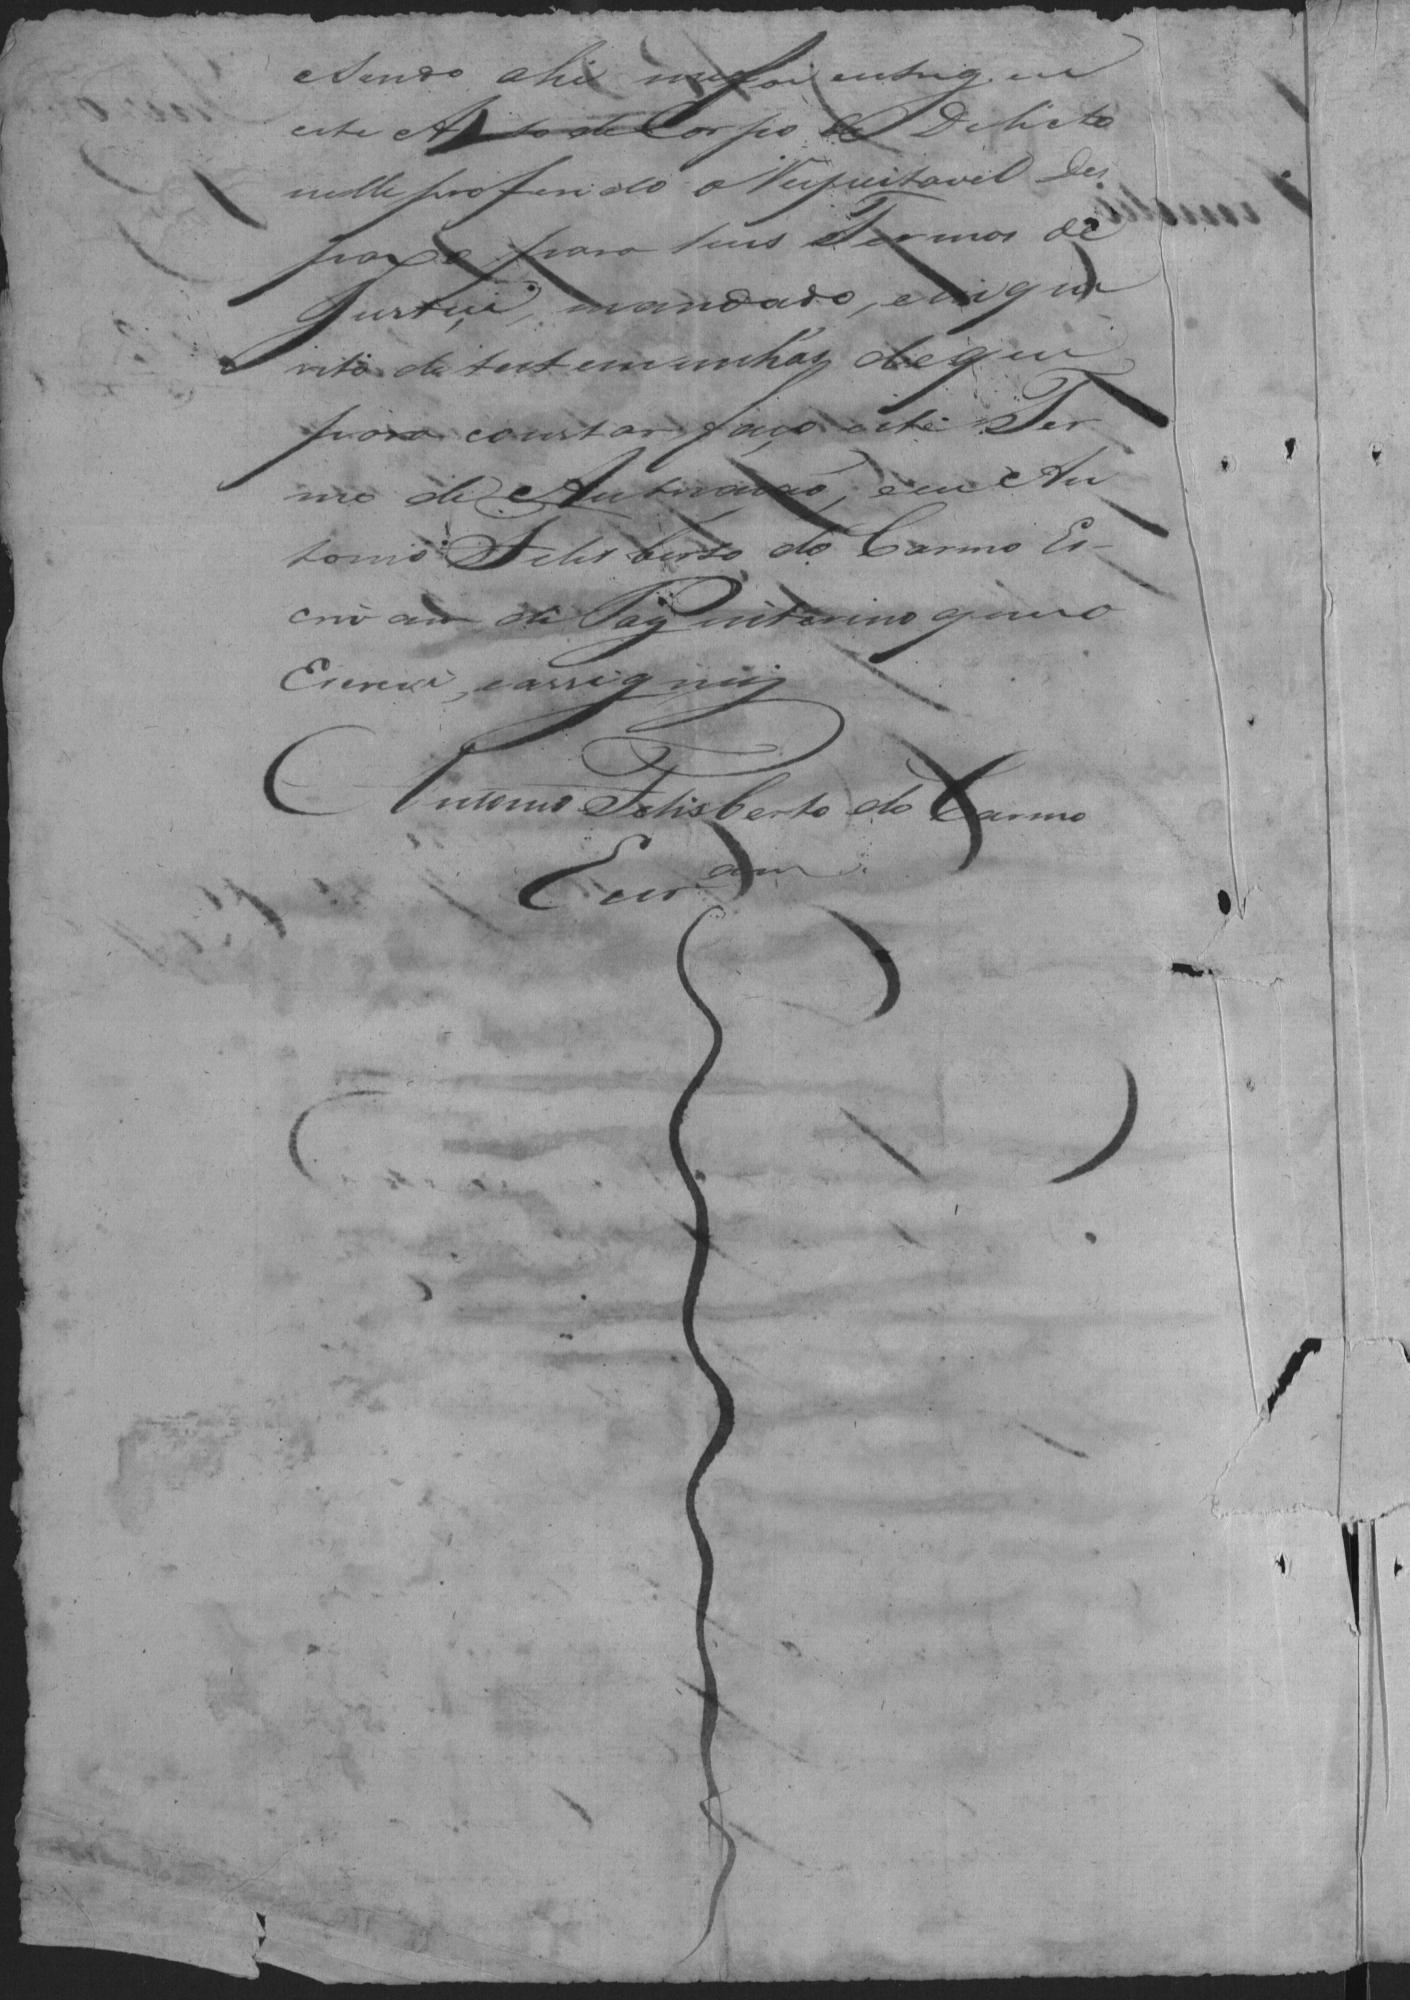 e sendo ahi me foi entregue
este Auto de Corpo de Delicto
nelle proferido o Respeitavel Des
paxo para seus Termos de
Justiça, mandado, e inque
rito de testemunhas de que
para constar faço este Ter
mo de Autuação, e eu An
tonio Felisberto do Carmo Es-
crivam de Paz interino que o
Escrevi, e assignei
Antonio Felisberto do Carmo
Escr.am